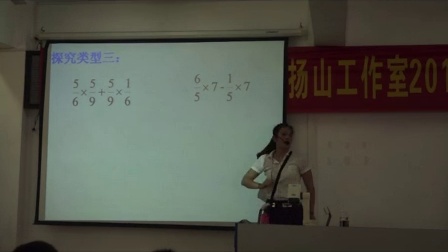 探究类型三:
5/6×5/9+5/9×1/6
6/5×7-1/5×7
扬山工作室201